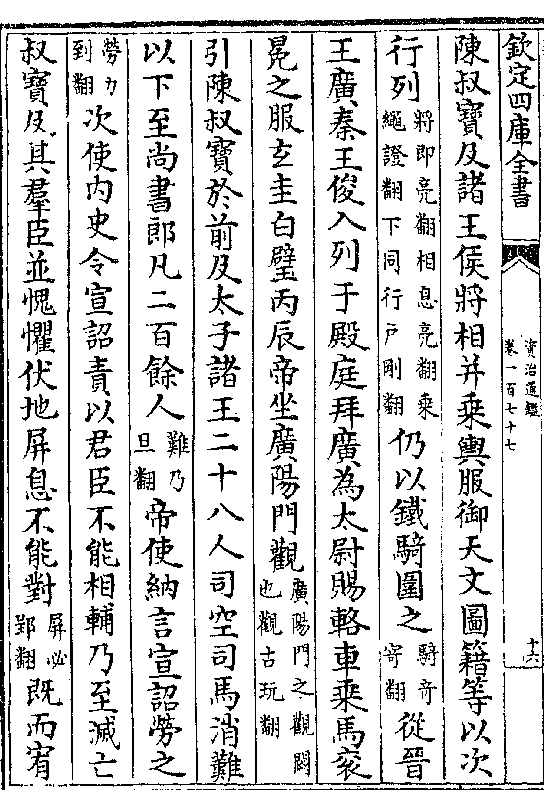 欽定四庫全書
資治通鑑
卷一百七十七
十六
陳叔寶及諸王侯將相并乘輿服御天文圖籍等以次
行列將即亮翻相息亮翻乘繩證翻下同行戶剛翻仍以鐵騎圍之騎奇寄翻從晉
王廣秦王俊入列于殿庭拜廣為太尉賜輅車乘馬衮
冕之服玄圭白璧丙辰帝坐廣陽門觀廣陽門之觀闕也觀古玩翻
引陳叔寶於前及太子諸王二十八人司空司馬消難
以下至尚書郎凡二百餘人難乃旦翻帝使納言宣詔勞之
勞力到翻次使内史令宣詔責以君臣不能相輔乃至滅亡
叔寶及其羣臣並愧懼伏地屏息不能對屏必郢翻既而宥